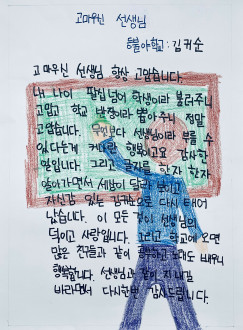 고마우신 선생님
등불야학교 : 김커순
고마우신 선생님 항상 고맙습니다.
내 나이 팔십넘어 학생이라 불러주니
고맙고 학교 반장이라 뽑아주니 정말
고맙습니다. 무엇보다 선생님이라 부를 수
있다는게 커다란 행복이고요 감사한
일입니다. 그리고 글자를 한자 한자
알아가면서 세상이 달라 보이고
자신감 있는 김커순으로 다시 태어
났습니다. 이 모든 것이 선생님의
덕이고 사랑입니다. 그리고 학교에 오면
많은 친구들과 같이 공부하고 노래도 배우니
행복합니다. 선생님과 같이 지내길
바라면서 다시한번 감사드립니다.